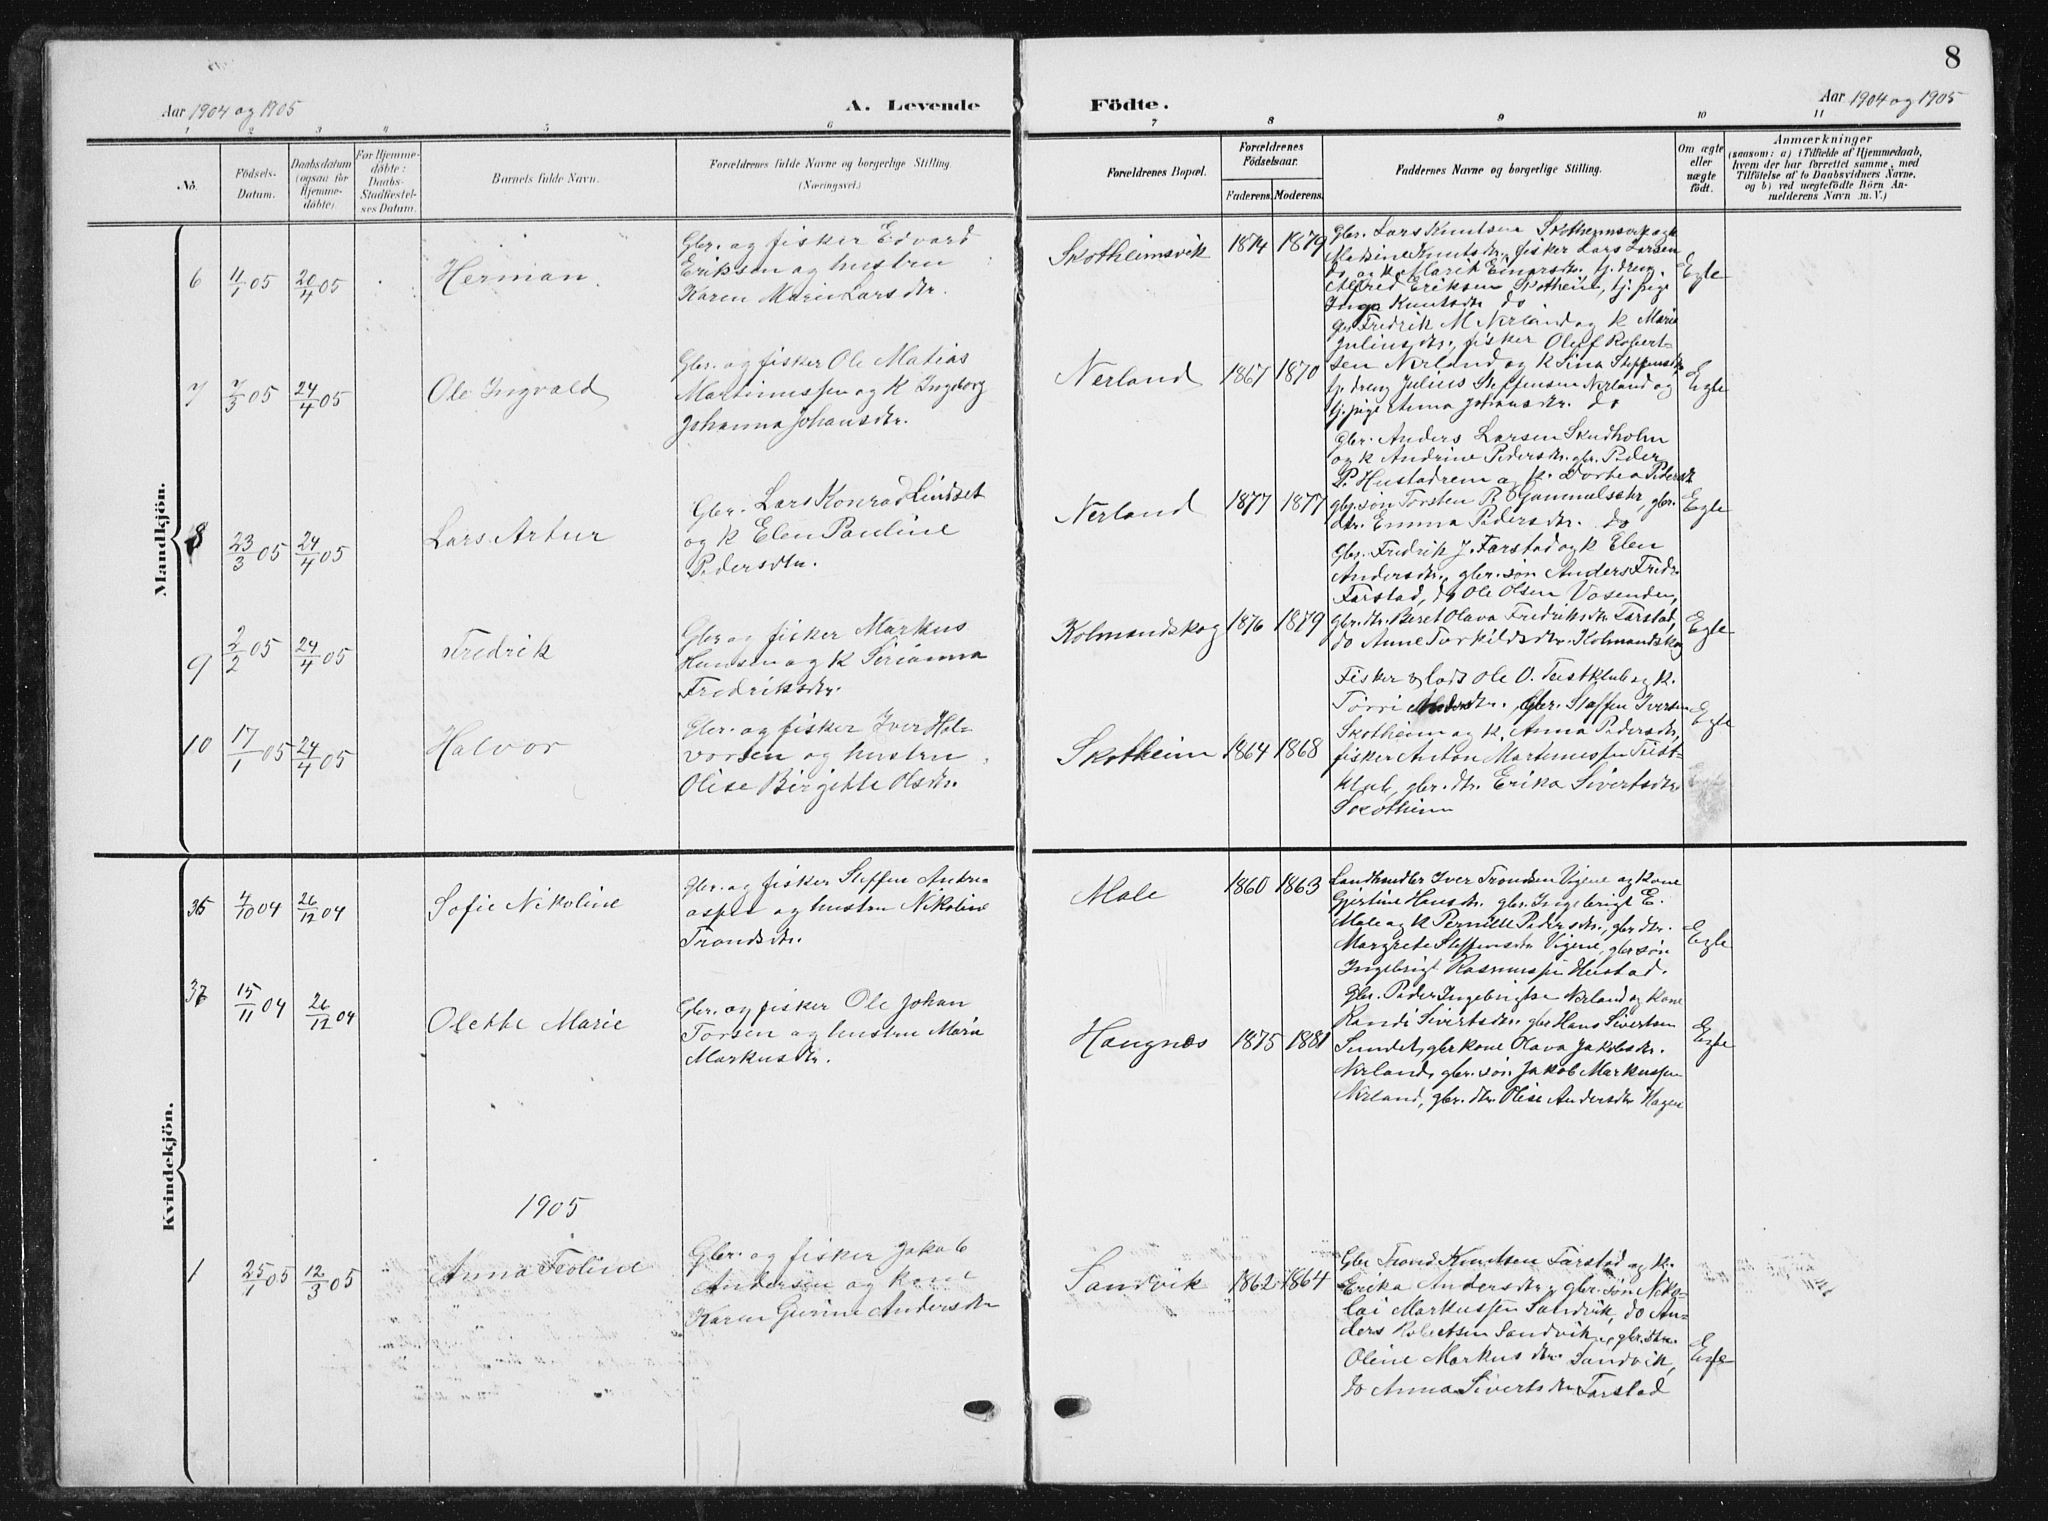 8
Aar 1904 og 1905
A. Levende Födte.
Aar 1904 og 1905
1 2 3 4 5 6 7 8 9 10 11
No.
Födsels-
Datum.
Daabsdatum
(ogsaa for
Hjemme-
døbte).
For Hjemme-
døbte:
Daabs-
Stadfæstel-
ses Datum.
Barnets fulde Navn.
Forældrenes fulde Navne og borgerlige Stilling
(Næringsvei.)
Forældrenes Bopæl.
Forældrenes
Födselsaar.
Faderens. Moderens.
Faddernes Navne og borgerlige Stilling.
Om ægte
eller
uægte
födt.
Anmærkninger
(saasom: a) i Tilfælde af Hjemmedaab,
hvem der har forrettet samme, med
Tilföielse af to Daabsvidners Navne,
og b) ved uægtefödte Börn An-
melderens Navn m. V.)
Mandkjön.
6 11/1 05 20/4 05 Herman.
Gbr. og fisker Edvard
Eriksen og hustru
Karen Marie Larsdtr.
Skotheimsvik 1874 1879
Gbr. Lars Knutsen Skotheimsvik og k
Knutsdtr., fisker Lars Larsen
do og k Marit Einarsdtr., tj. dreng
Alfred Eriksen Skotheim, tj. pige
Inga Knutsdtr. do.
Egte
7 7/3 05 24/4 05 Ole Ingvald
Gbr. og fisker Ole Matias
Martinussen og k Ingeborg
Johanna Johansdtr.
Nerland 1867 1870
Gbr. Fredrik M Nerland og k Marie
Juliusdtr., fisker Oluf Robert-
sen Nerland og k Sina Steffensdtr
tj. dreng Julius Steffensen Nerland og
tj. pige Anna Johansdtr. do
Egte
8 23/3 05 24/4 05 Lars Artur
Gbr. Lars Konrad Lindset
og k Elen Pauline
Pedersdtr.
Nerland 1877 1877
Gbr. Anders Larsen Skudholm
og k Andrine Pedersdtr. gbr. Peder
P. Hustadrem og k. Dortea Pedersdtr
gbr. søn Torsten P. Gammelsæhr, gbr.
dtr. Emma Pedersdtr. do
Egte
9 2/2 05 24/4 05 Fredrik
Gbr. og fisker Markus
Hansen og k Serianna
Fredriksdtr.
Kolmandskog 1876 1879
Gbr. Fredrik J. Farstad og k Elen
Andersdtr., gbr. søn Anders Fredr.
Farstad, do Ole Olsen Vasenden,
gbr. dtr. Beret Olava Fredriksdtr Farstad,
do Anne Torkildsdtr. Kolmandskog
Egte
10 17/1 05 24/4 05 Halvor
Gbr. og fisker Iver Hal-
vorsen og hustru
Olise Birgitte Olsdtr.
Skotheim 1864 1868
Fisker & lods Ole O. Teistklub og k.
Torri Andersdtr. Gbr. Staffen Iversen
Skotheim og k. Anna Pedersdtr,
fisker Anton Martinussen Teist-
klub, gbr. dtr. Erika Sivertsdtr
Skotheim
Egte
Kvindekjön.
36 4/10 04 26/12 04 Sofie Nikoline
Gbr. og fisker Steffen Andre-
assen og hustru Nikoline
Trondsdtr.
Male 1860 1863
Landhandler Iver Trondsen Vigene og kone
Gjertine Hansdtr. gbr. Ingebrigt E.
Male og k Pernille Pedersdtr., gbr dtr.
Margrete Steffensdtr Vigene, gbr søn
Ingebrigt Rasmussen Hustad.
Egte
37 15/11 04 26/12 04 Olette Marie
Gbr. og fisker Ole Johan
Torsen og hustru Marie
Markusdtr.
Haugnæs 1875 1881
Gbr. Peder Ingebrigtse Nerland og kone
Randi Sivertsdtr. gbr Hans Sivertsen
Sundet, gbr kone Olava Jakobsdtr.
Nerland, gbr. søn Jakob Markussen
Nerland, gbr. dtr. Olise Andersdtr Hagen
Egte
1905
1 25/1 05 12/3 05 Anna Feoline
Gbr. og fisker Jakob
Andersen og kone
Karen Gurine Andersdtr
Sandvik 1862 1864
Gbr Trond Knudsen Farstad og k.
Erika Andersdtr, gbr. søn Niko-
lai Markussen Sandvik, do An-
ders Robertsen Sandvik, gbr. dtr.
Oline Markusdtr. Sandvik,
do Anna Sivertsdtr Farstad
Egte